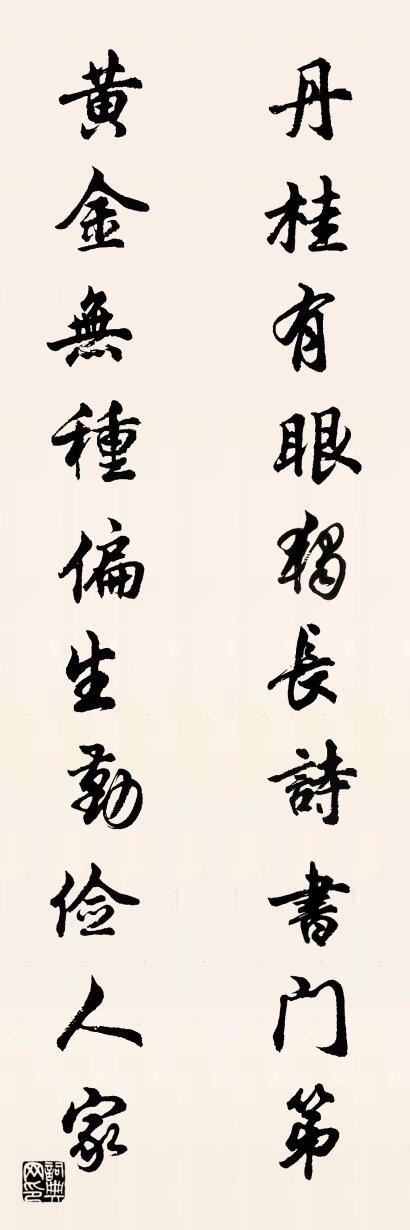 丹桂有眼獨長詩書門第
黃金無種偏生勤儉人家
詞典网印